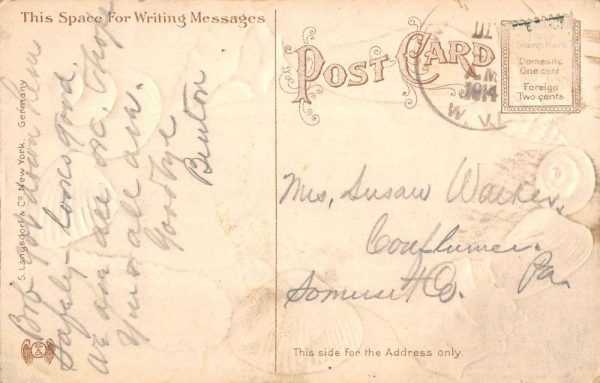 This Space For Writing Messages
Bro got down here
Safely - looks good.
We are all O.K. hope
you all are.
Goodbye
Benton
S. Langsdorf & Co. New York. Germany
POST CARD
III
A.M.
1914
W. V.
Stamp Here
Domestic
One cent
Foreign
Two cents
Mrs, Susan
Confluence
Pa.
Somerset Co.
This side for the Address only.